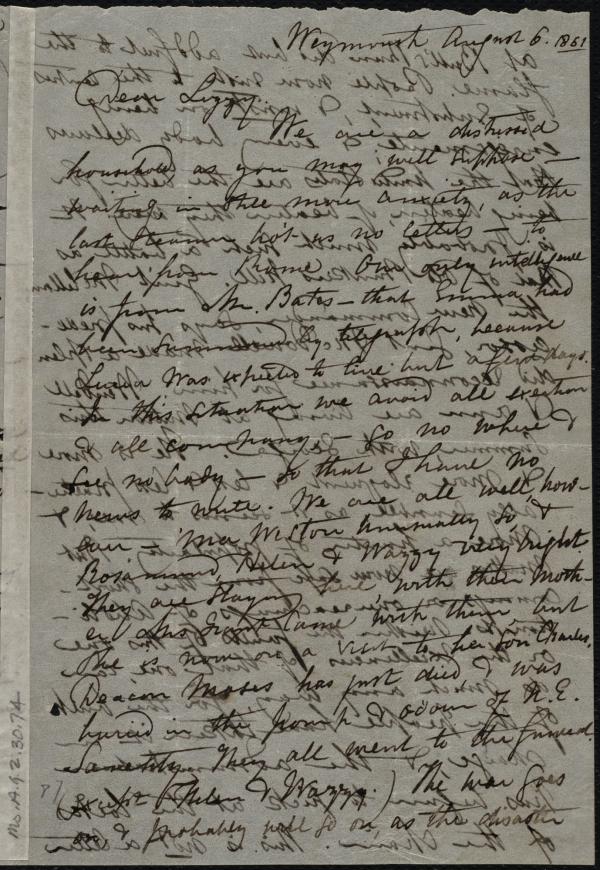 Weymouth August 6. 1861
Dear Lizzy.
We are a distressed
household as you may well suppose —
waiting in still more anxiety, as the
last steamer bro't us no letters — to
hear from Rome. Our only intelligence
is from Mr. Bates — that Emma had
been summoned by telegraph, because
Lucia was expected to live but a few days.
In this situation we avoid all exertion
& all company, — go no where &
see no body — so that I have no
news to write. We are all well, how-
ever — Weston unusually so, &
Rosamund, Helen & Wazzy very bright
They are staying here, with their Moth-
er. Mrs came with them, but
She is now on a visit to her son Charles.
Deacon Moses has just died & was
buried in the pomp & odour of N.E.
Sanctity. They all went to the funeral.
except (Helen & Wazzy.) The war goes
on & probably will go on, as the disaster
8/
Ms.A.9.2.30.74